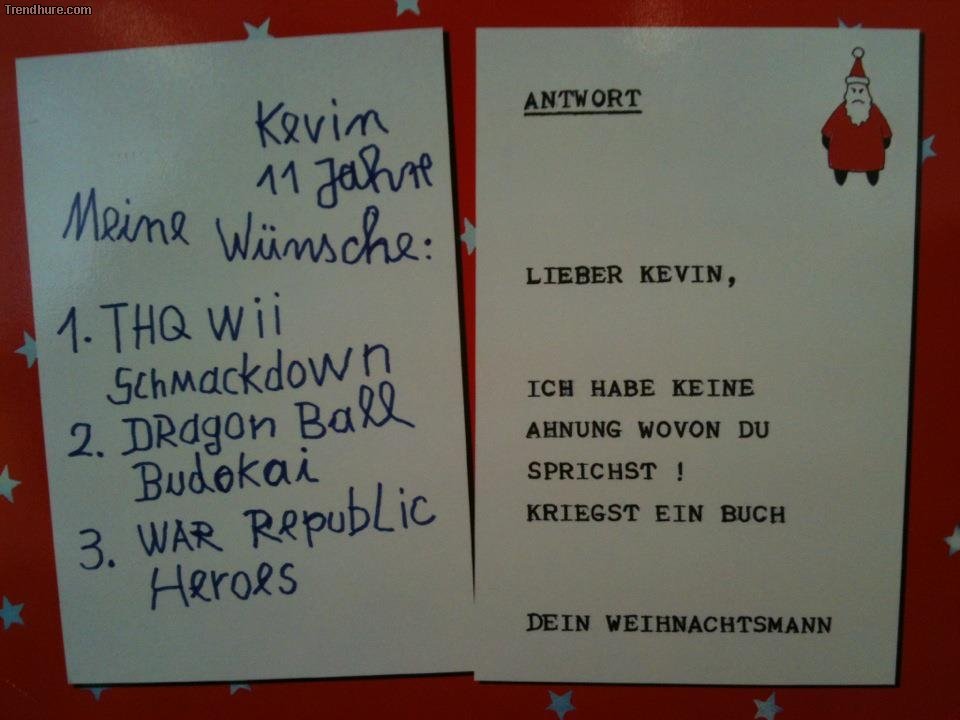 Trendhure.com
Kevin
11 Jahre
Meine Wünsche:
1. THQ Wii
Schmackdown
2. DRagon Ball
Budokai
3. WAR Republic
Heroes
ANTWORT
LIEBER KEVIN,
ICH HABE KEINE
AHNUNG WOVON DU
SPRICHST !
KRIEGST EIN BUCH
DEIN WEIHNACHTSMANN